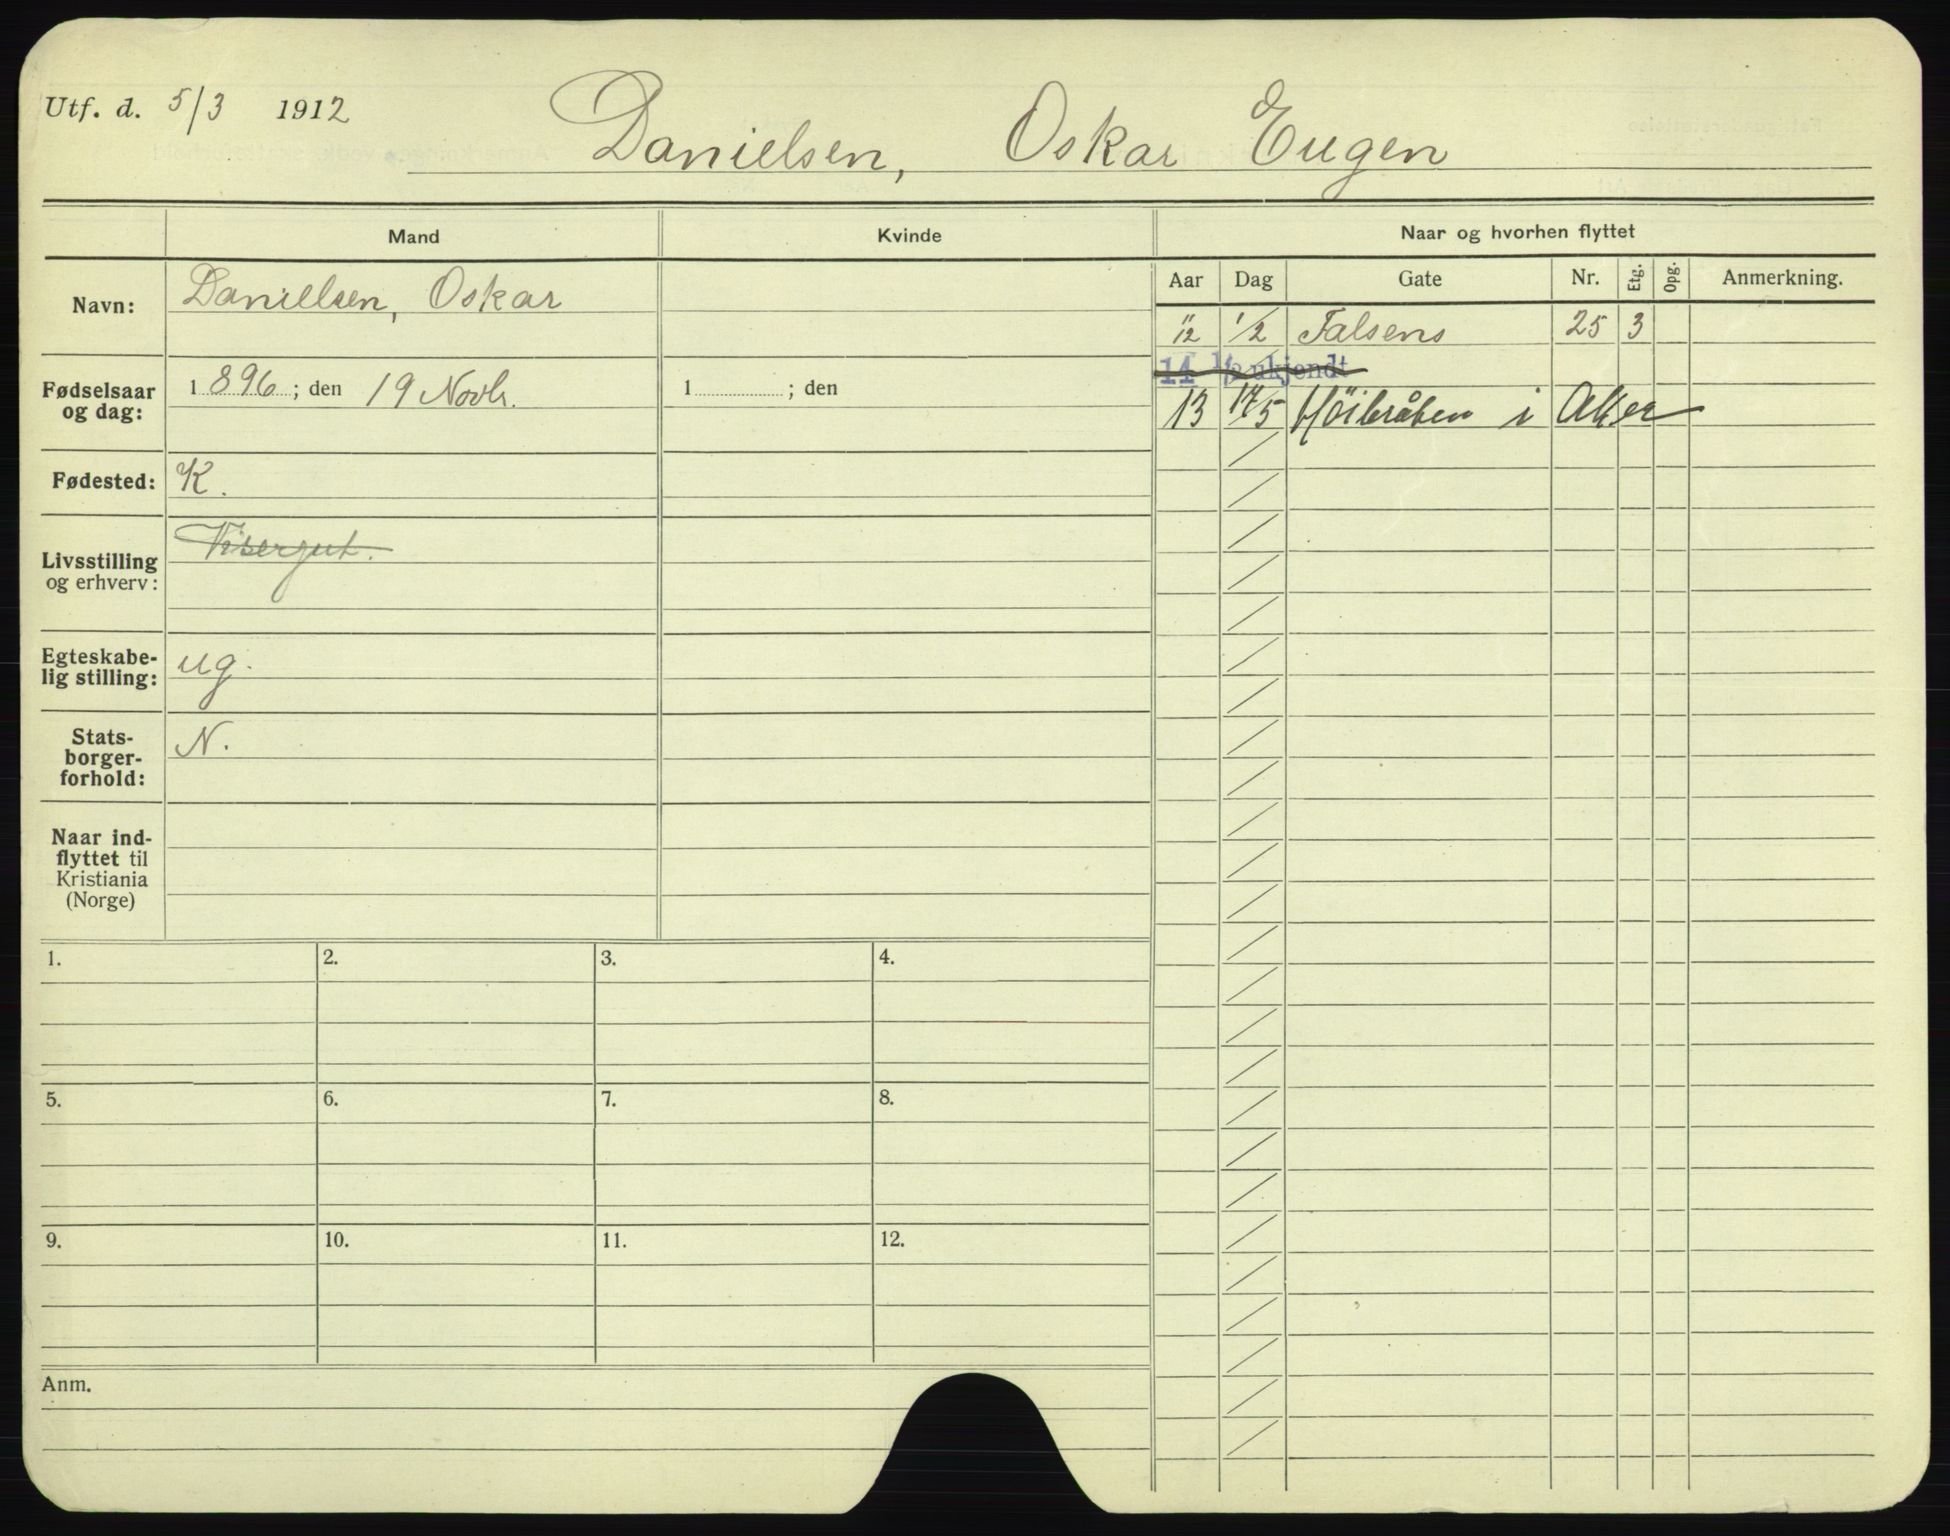 Utf. d. 5/3 1912
Danielsen, Oskar Eugen
Mand
Kvinde
Naar og hvorhen flyttet
Aar Dag Gate Nr. Etg. Opg. Anmerkning.
Navn: Danielsen, Oskar
12 1/2 Falsens 25 3
14 1/2 ukjendt
Fødselsaar og dag: 1896; den 19 Novbr. 1 ; den
13 17/5 Höibråten i Aker
Fødested: K.
Livsstilling og erhverv: Visergut.
Egteskabe-
lig stilling: ug.
Stats-
borger-
forhold: N.
Naar ind-
flyttet til
Kristiania
(Norge)
1. 2. 3. 4.
5. 6. 7. 8.
9. 10. 11. 12.
Anm.